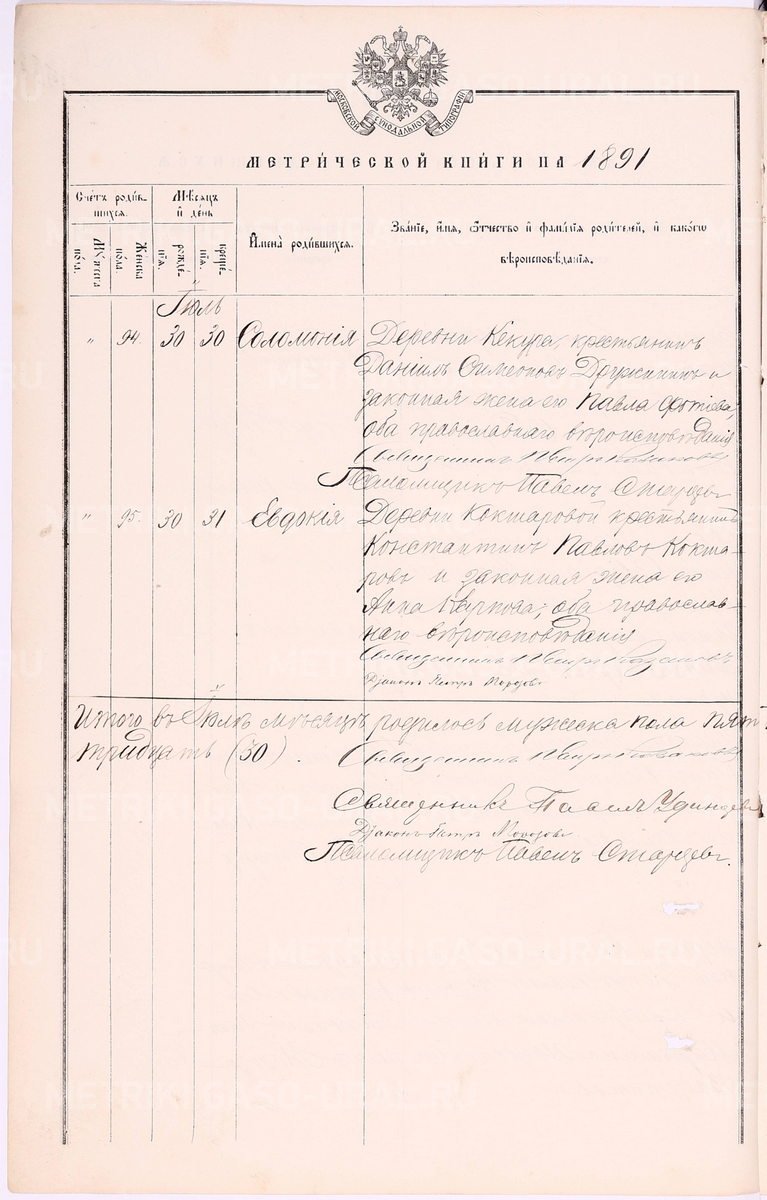 МОСКОВСКОЙ СѴНОДАЛЬНОЙ ТИПОГРАФІИ
МЕТРИ́ЧЕСКОЙ КНИ́ГИ НА 1891
Сче́тъ роди́в-
шихся.
Мѣ́сяцъ
и҆ де́нь
Мꙋ́жеска
по́ла.
Же́нска
по́ла.
рожде́-
нїѧ.
креще́-
нїѧ.
И҆мена̀ роди́вшихся.
Зва́нїе, и҆́мѧ, ѻ҆́тчество и҆ фамі́лїѧ роди́телей, и҆ како́гѡ
вѣроисповѣ́данїѧ.
Іюль
„ 94. 30 30 Соломонія Деревни Кекура, крестьянинъ
Даніилъ Симеоновъ Дружининъ и
законная жена его Павла Фотіева,
оба православнаго вѣроисповѣданія
Священникъ
Псаломщикъ Павелъ Старцевъ
„ 95. 30 31 Евдокія Деревни Кокшаровой крестьянинъ
Константинъ Павловъ Кокша-
ровъ и законная жена его
Анна Карпова, оба православ-
наго вѣроисповѣданія
Священникъ
Діаконъ Петръ Морозовъ
Итого въ Іюлѣ мѣсяцѣ родилось мужеска пола
тридцать (30).
Священникъ
Священникъ
Діаконъ Петръ Морозовъ
Псаломщикъ Павелъ Старцевъ.